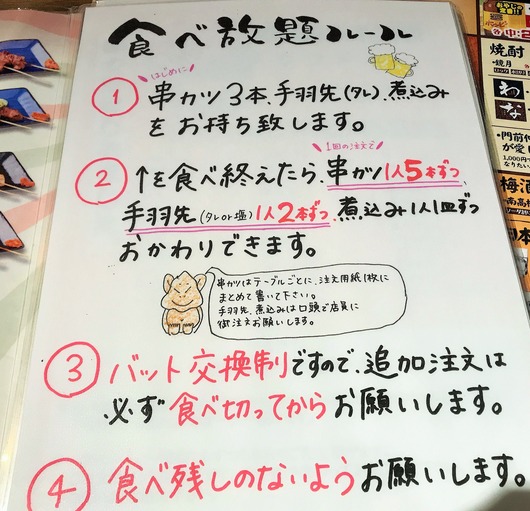 食べ放題ルール
はじめに
① 串カツ3本、手羽先(タレ)、煮込み
をお持ち致します。
1回の注文で
② ↑を食べ終えたら、串カツ1人5本ずつ
手羽先(タレor塩)1人2本ずつ、煮込み1人1皿ずつ
おかわりできます。
串カツはテーブルごとに、注文用紙1枚に
まとめて書いて下さい。
手羽先、煮込みは口頭で店員に
御注文お願いします。
③ バット交換制ですので、追加注文は
必ず食べ切ってからお願いします。
④ 食べ残しのないようお願いします。
焼酎
鏡月
わ
な
門前仲
が愛し
1,000円でも
梅酒
南高梅